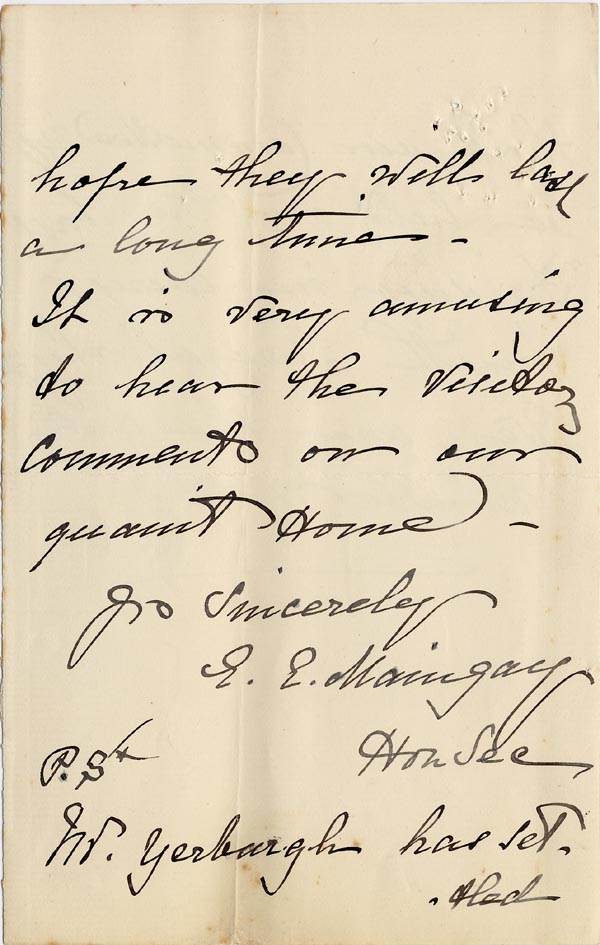 hope they will last
a long time -
It is very amusing
to hear the visitors
comments on our
quaint Home -
Yrs Sincerely
E. E. Maingay
Hon Sec
P.S
Mr. Yerburgh has set-
-tled